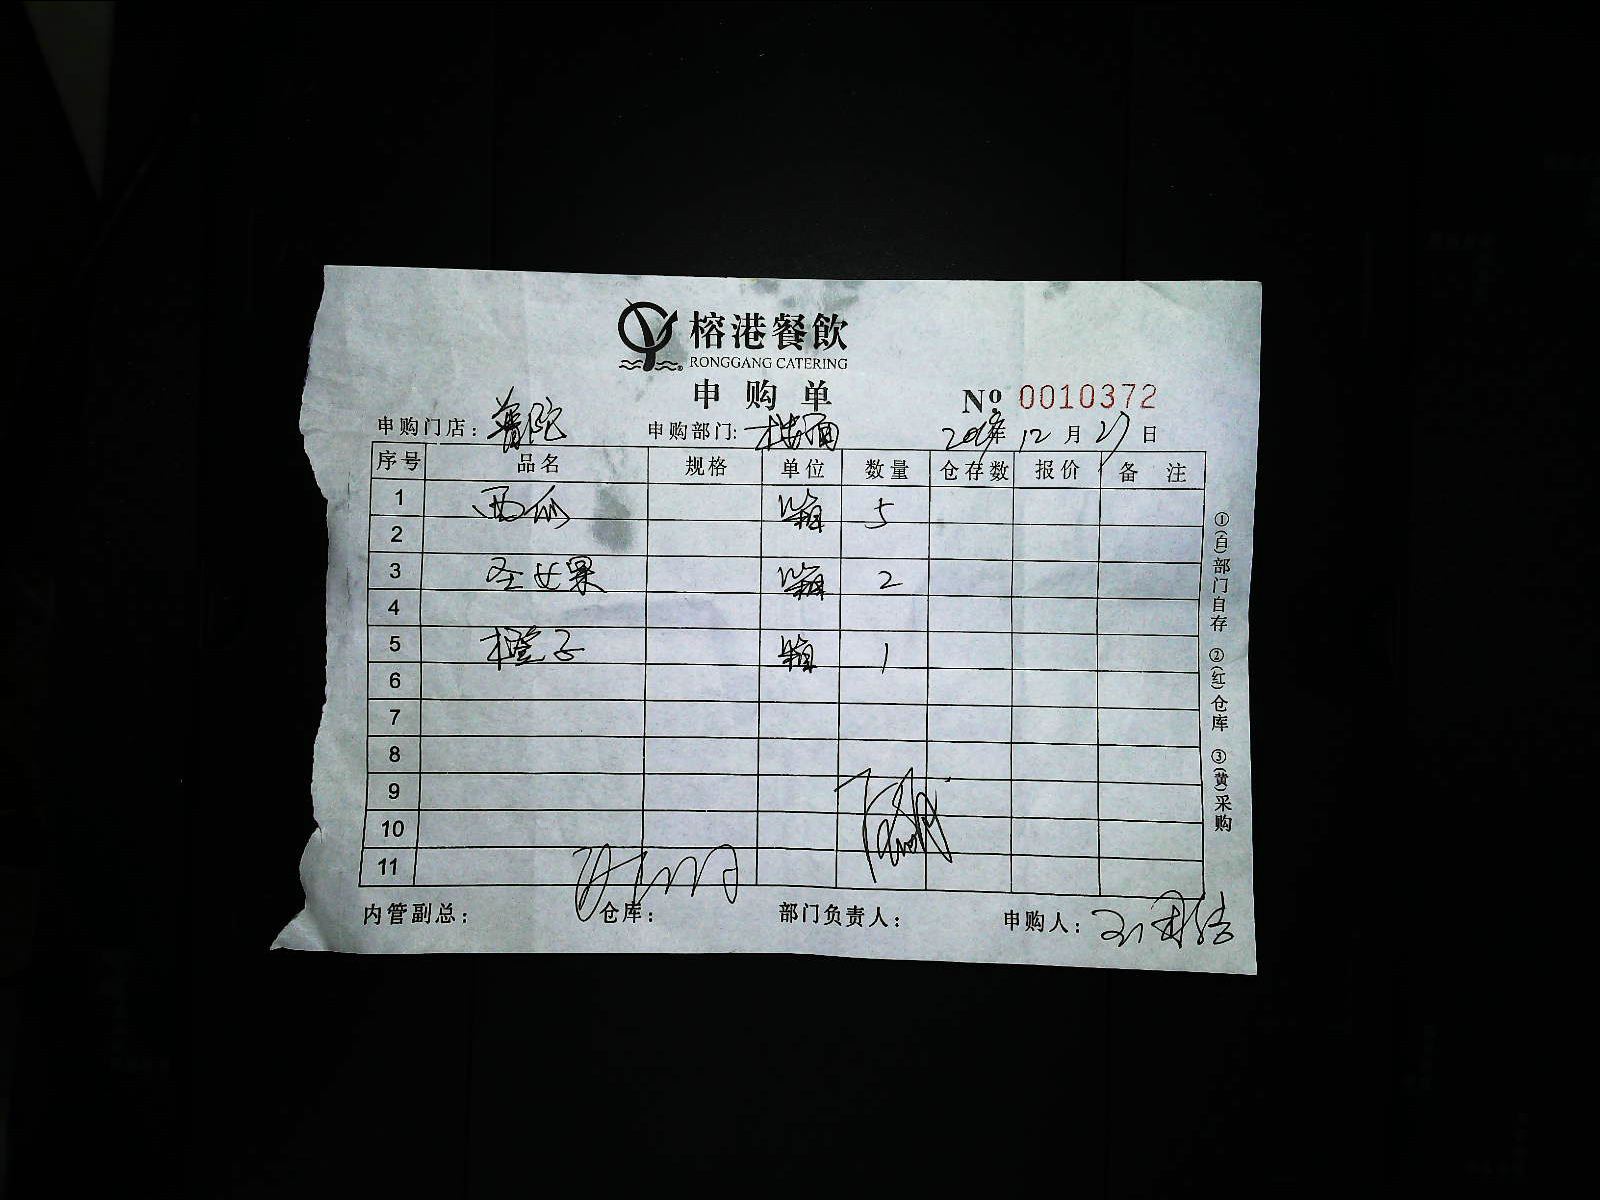 榕港餐飲
RONGGANG CATERING
申购单
№ 0010372
申购门店：普陀 申购部门：楼面 年12月27日
序号 品名 规格 单位 数量 仓存数 报价 备注
1 西瓜 箱 5
2
3 圣女果 箱 2
4
5 橙子 箱 1
6
7
8
9
10
11
内管副总： 仓库： 部门负责人： 申购人：
①(白)部门自存 ②(红)仓库 ③(黄)采购